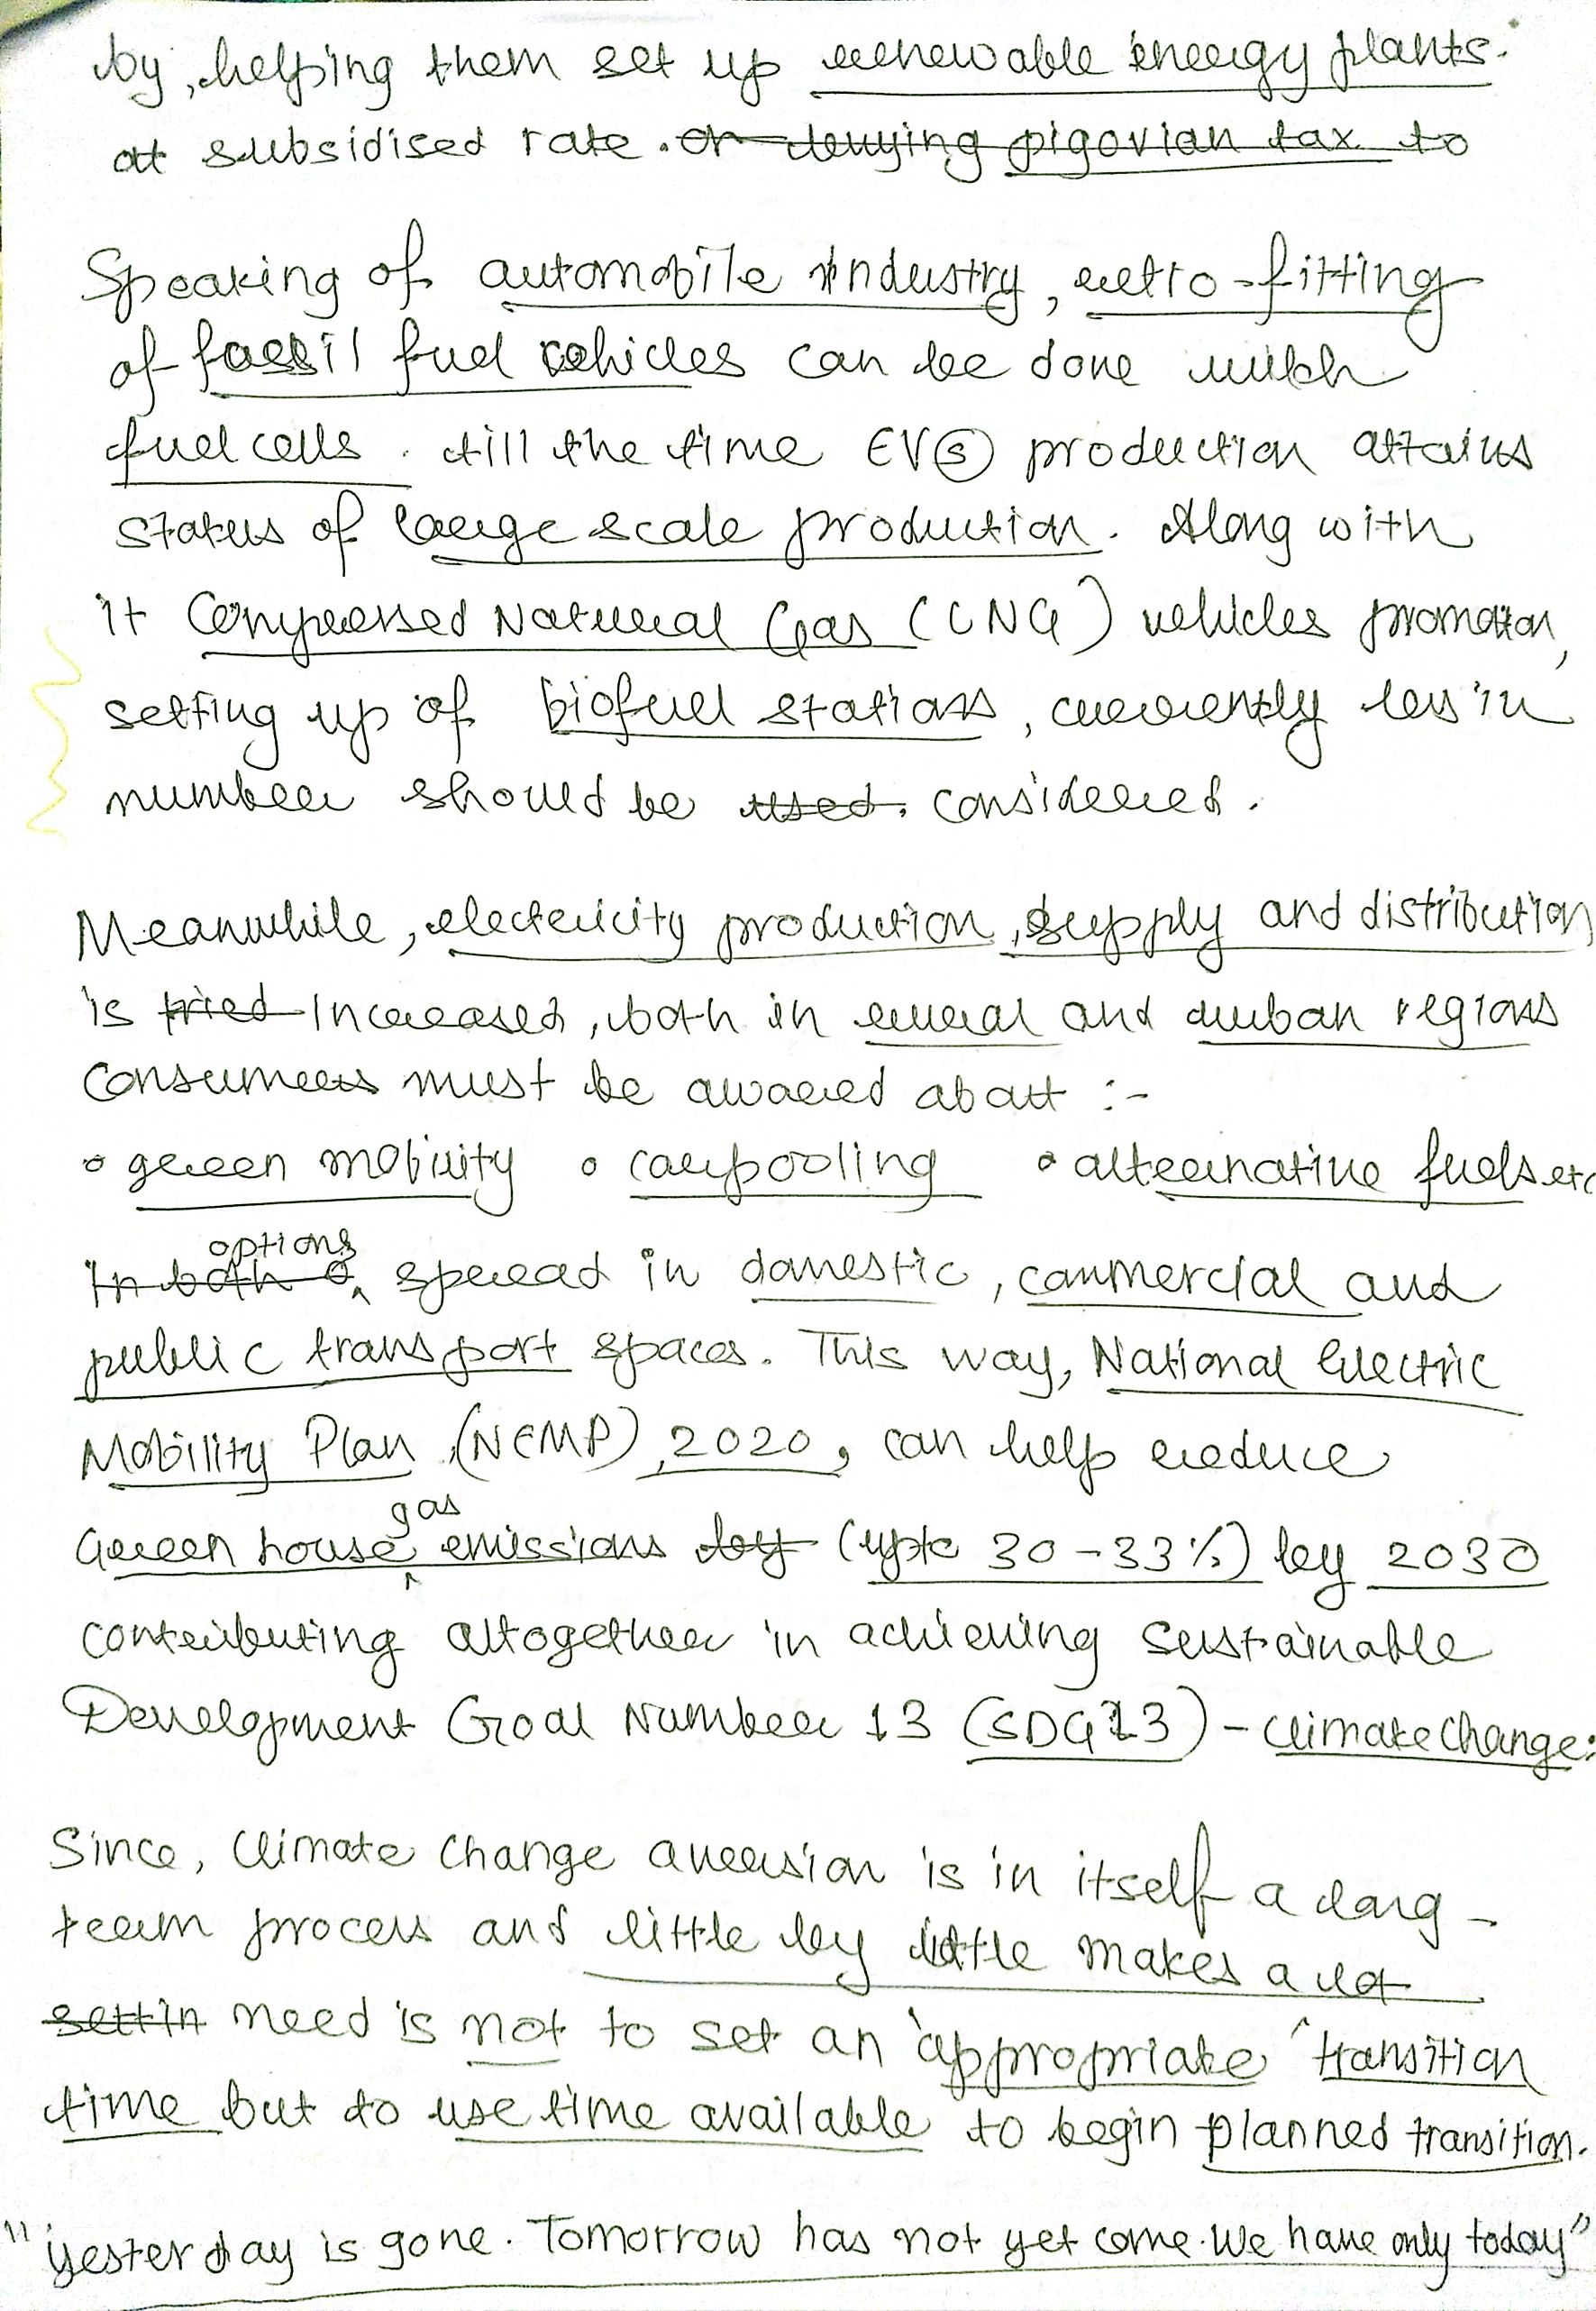 by, helping them set up renewable energy plants.
at subsidised rate. Or levying pigovian tax to
Speaking of automobile industry, retro-fitting
of fossil fuel vehicles can be done with
fuel cells. till the time EV(s) production attains
status of large scale production. Along with
it Compressed Natural Gas (CNG) vehicles promotion,
setting up of biofuel stations, currently less in
number should be used. considered.
Meanwhile, electricity production, supply and distribution
is tried increased, both in rural and urban regions
Consumers must be awared about :-
◦ green mobility ◦ carpooling ◦ alternative fuels etc
options
In both o spread in domestic, commercial and
public transport spaces. This way, National Electric
Mobility Plan (NEMP), 2020, can help reduce
gas
Green house emissions by (upto 30-33%) by 2030
contributing altogether in achieving sustainable
Development Goal Number 13 (SDG13) - Climate Change:
Since, Climate Change aversion is in itself a long-
term process and little by little makes a lot
settin need is not to set an 'appropriate' transition
time but to use time available to begin planned transition.
"yesterday is gone. Tomorrow has not yet come. We have only today"